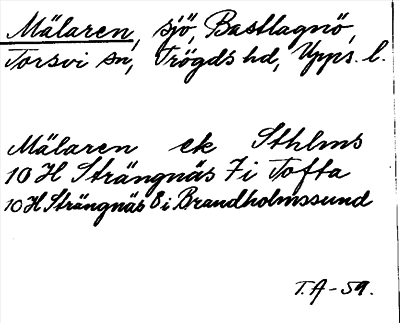 Mälaren, sjö, Bastlagnö,
Torsvi sn, Trögds hd, Upps. l.
Mälaren ek Sthlms
10 H Strängnäs 7 i Tofta
10 H Strängnäs 8 i Brandholmssund
T.A-59.